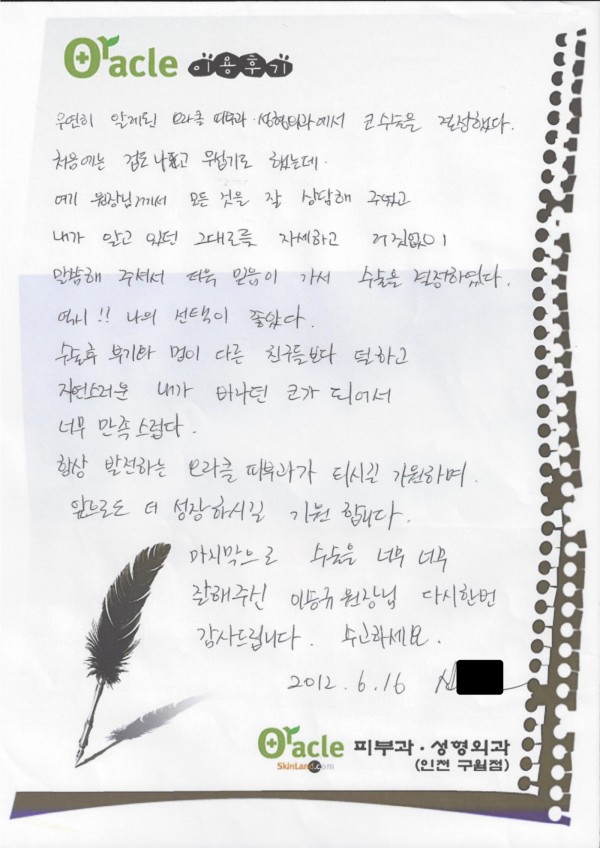 Oracle 이용후기
우연히 알게된 오라클 피부과·성형외과에서 코수술을 결정했다.
처음에는 겁도 나고 무섭기도 했는데.
여기 원장님께서 모든 것을 잘 상담해 주었고
내가 알고 있던 그대로를 자세하고 거짓없이
말씀해 주셔서 더욱 믿음이 가서 수술을 결정하였다.
역시!! 나의 선택이 좋았다.
수술후 부기나 멍이 다른 친구들보다 덜하고
자연스러운 내가 바라던 코가 되어서
너무 만족스럽다.
항상 발전하는 오라클 피부과가 되시길 기원하며.
앞으로도 더 성장하시길 기원 합니다.
마지막으로 수술을 너무 너무
잘해주신 원장님 다시한번
감사드립니다. 수고하세요.
2012.6.16
Oracle 피부과·성형외과
SkinLand.com (인천 구월점)